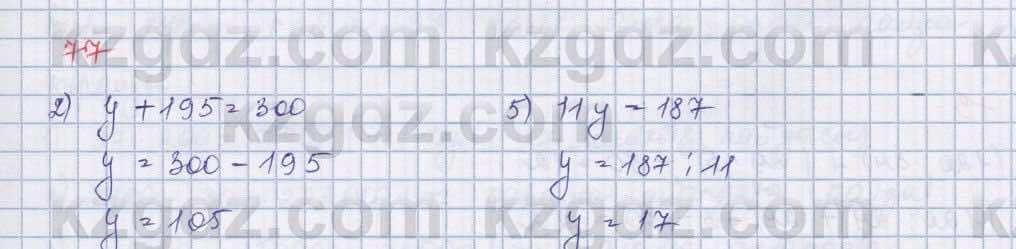 77
2) y + 195 = 300
y = 300 - 195
y = 105
5) 11y = 187
y = 187 : 11
y = 17
kzgdz.com
kzgdz.com
kzgdz.com
kzgdz.com
kzgdz.com